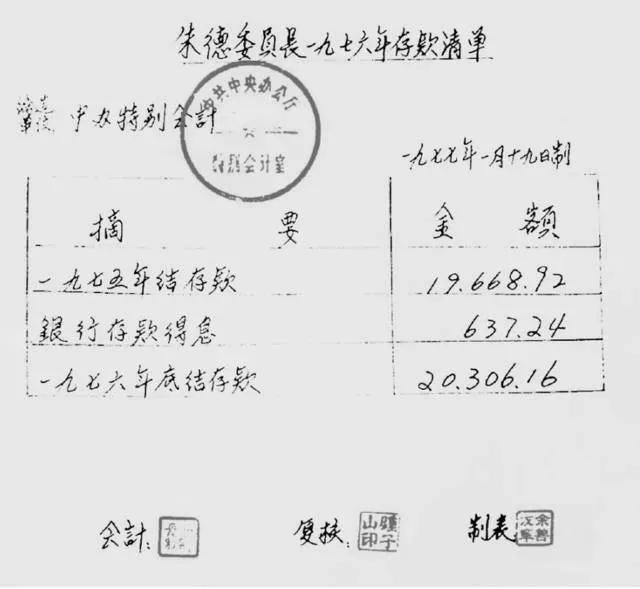 朱德委員長一九七六年存款清单
中共中央办公厅
特别会计室
中办特别会計
一九七七年一月十九日制
摘 要 金 額
一九七五年结存款 19.668.92
銀行存款得息 637.24
一九七六年底结存款 20.306.16
会計: 复核: 制表
山子
印